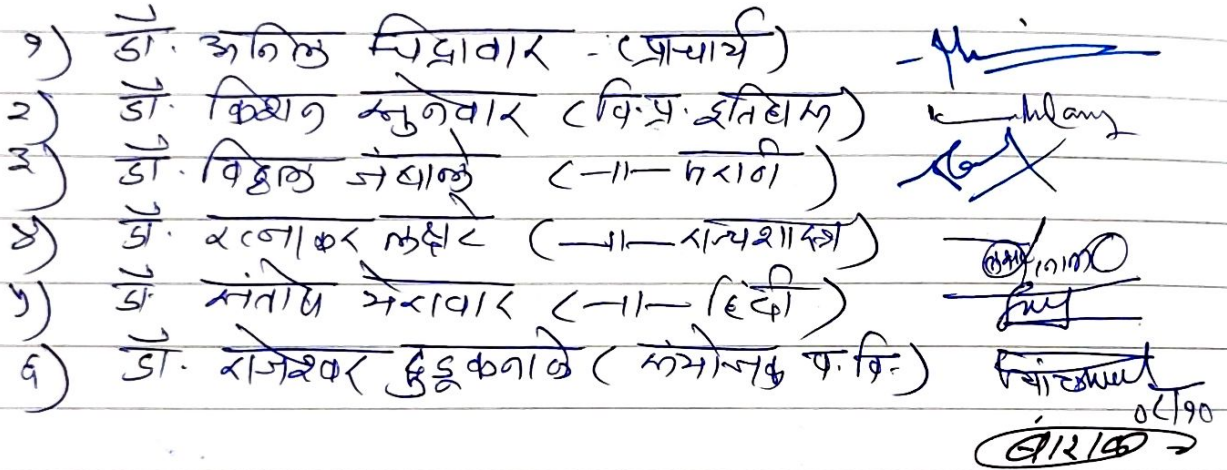 १) डॉ. अनिल चिद्रावार - (प्राचार्य)
२) डॉ. किशन सुनेवार (वि.प्र. इतिहास)
३) डॉ. विठ्ठल जंबाले (–॥– मराठी)
४) डॉ. रत्नाकर लक्षटे (–॥– राज्यशास्त्र)
५) डॉ संतोष येरावार (–॥– हिंदी)
६) डॉ. राजेश्वर दुडूकनाळे (संयोजक प.वि.)